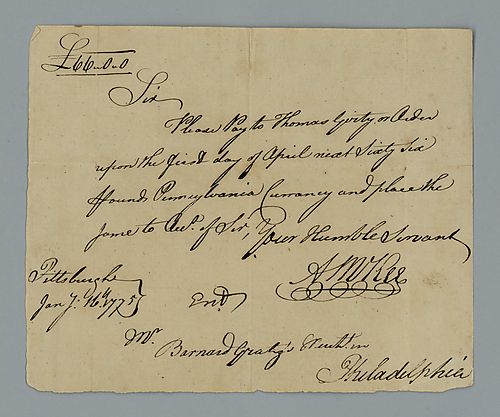 £66..0..0
Sir
Please Pay to Thomas Girty or Order
upon the first day of April next Sixty Six
Pounds Pennsylvania Currancy and place the
same to Acct. of Sir, Your Humble Servant
Pittsburgh
Jany. 16th 1775
A McKee
Mr.
Barnard Gratz's Mercht. in
Philadelphia